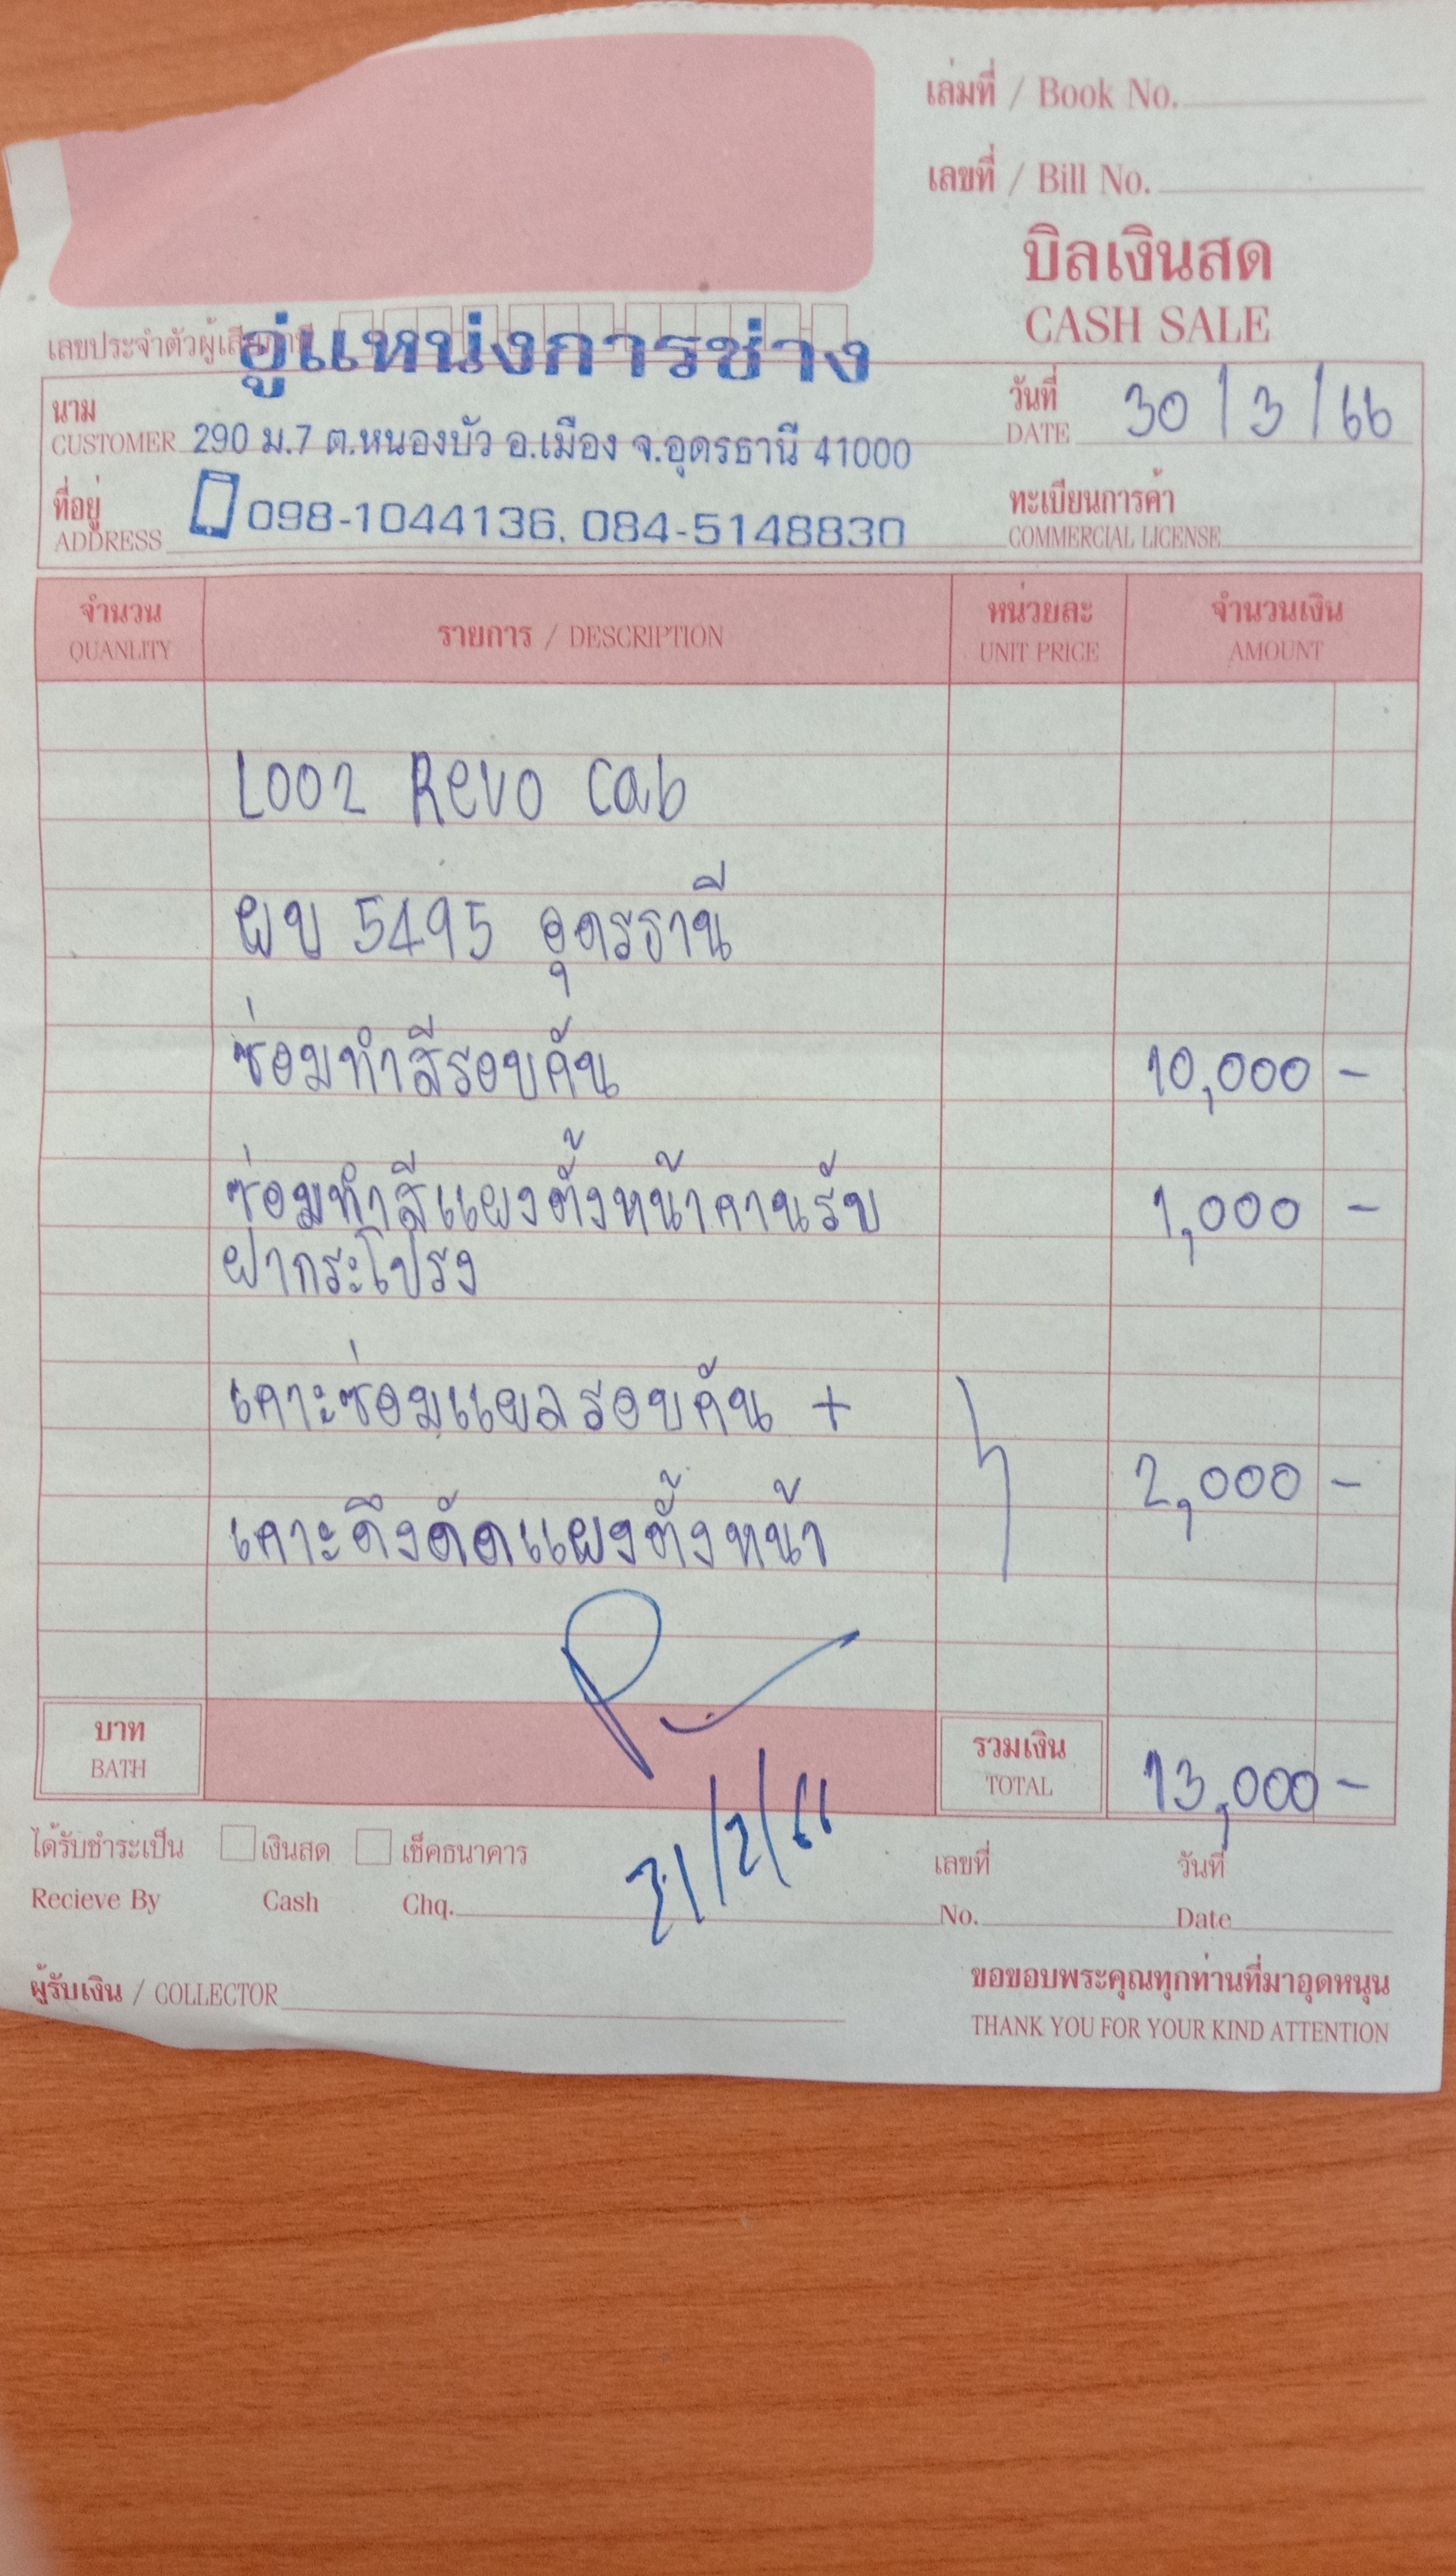 เล่มที่ / Book No.
เลขที่ / Bill No.
บิลเงินสด
CASH SALE
เลขประจำตัวผู้เสีย
อู่แหน่งการช่าง
นาม
CUSTOMER 290 ม.7 ต.หนองบัว อ.เมือง จ.อุดรธานี 41000
วันที่
DATE 30/3/66
ที่อยู่
ADDRESS 098-1044136, 084-5148830
ทะเบียนการค้า
COMMERCIAL LICENSE
จำนวน รายการ / DESCRIPTION หน่วยละ จำนวนเงิน
QUANLITY UNIT PRICE AMOUNT
L002 Revo Cab
ผบ 5495 อุดรธานี
ซ่อมทำสีรอบคัน 10,000 -
ซ่อมทำสีแผงตั้งหน้าคานรับ 1,000 -
ฝากระโปรง
เคาะซ่อมแผลรอบคัน +
2,000 -
เคาะดึงดัดแผงตั้งหน้า
บาท รวมเงิน
BATH TOTAL 13,000 -
ได้รับชำระเป็น เงินสด เช็คธนาคาร เลขที่ วันที่
Recieve By Cash Chq. No. Date
ผู้รับเงิน / COLLECTOR
ขอขอบพระคุณทุกท่านที่มาอุดหนุน
THANK YOU FOR YOUR KIND ATTENTION